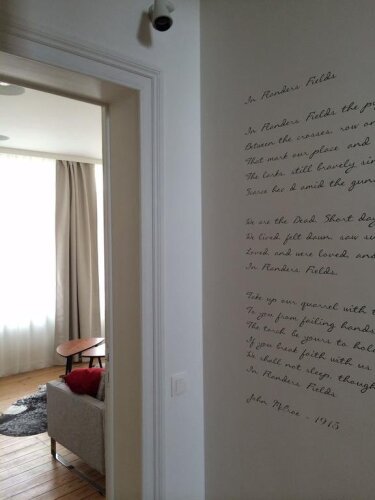 In Flanders Fields
In Flanders Fields the
Between the crosses row on
That mark our place and
The larks still bravely
Scarce hea d amid the
We are the Dead. Short
We lived felt dawn saw
Loved and were loved and
In Flanders Fields
Take up our quarrel with
To you from failing hands
The torch be yours to
If you break faith with us
We shall not sleep, though
In Flanders Fields
John McCrae - 1915